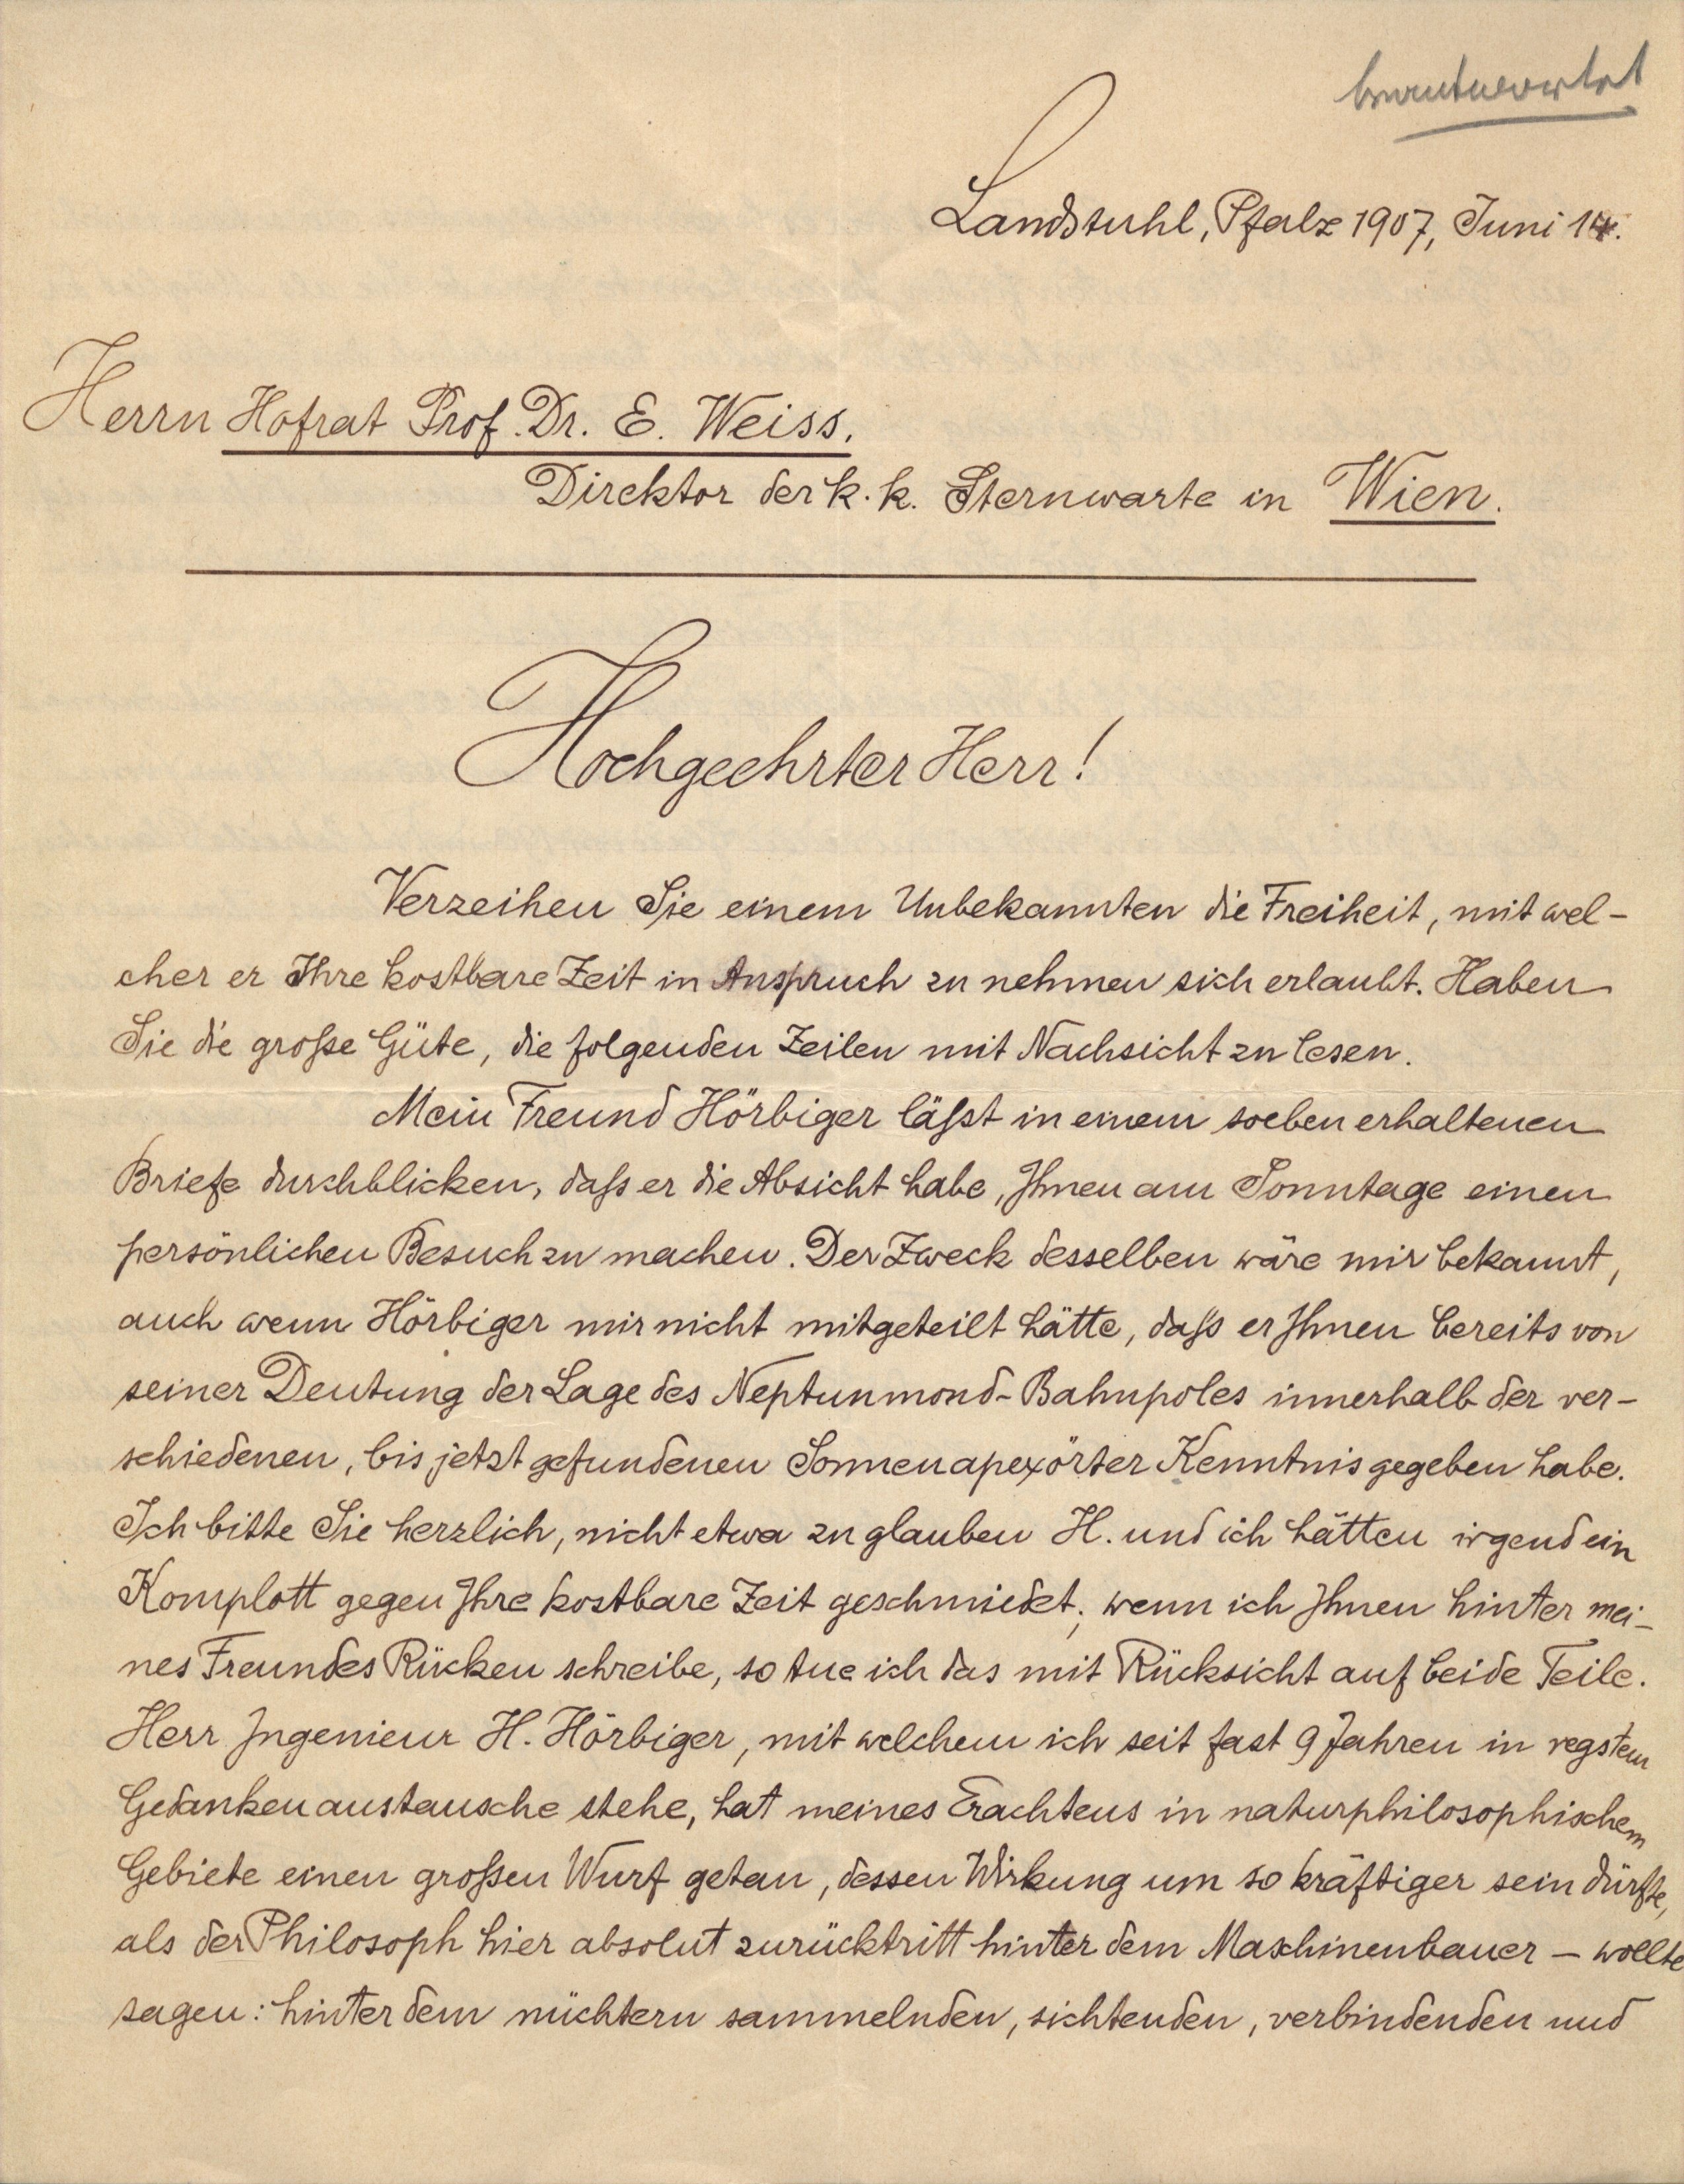 beantwortet
Landstuhl, Pfalz 1907, Juni 14.
Herrn Hofrat Prof. Dr. E. Weiss.
Direktor der k. k. Sternwarte in Wien.
Hochgeehrter Herr!
Verzeihen Sie einem Unbekannten die Freiheit, mit wel-
cher er Ihre kostbare Zeit in Anspruch zu nehmen sich erlaubt. Haben
Sie die große Güte, die folgenden Zeilen mit Nachsicht zu lesen.
Mein Freund Hörbiger läßt in einem soeben erhaltenen
Briefe durchblicken, daß er die Absicht habe, Ihnen am Sonntage einen
persönlichen Besuch zu machen. Der Zweck desselben wäre mir bekannt,
auch wenn Hörbiger mir nicht mitgeteilt hätte, daß er Ihnen bereits von
seiner Deutung der Lage des Neptunmond-Bahnpoles innerhalb der ver-
schiedenen, bis jetzt gefundenen Sonnenapexörter Kenntnis gegeben habe.
Ich bitte Sie herzlich, nicht etwa zu glauben H. und ich hätten irgend ein
Komplott gegen Ihre kostbare Zeit geschmiedet; wenn ich Ihnen hinter mei-
nes Freundes Rücken schreibe, so tue ich das mit Rücksicht auf beide Teile.
Herr Ingenieur H. Hörbiger, mit welchem ich seit fast 9 Jahren in regstem
Gedankenaustausche stehe, hat meines Erachtens in naturphilosophischem
Gebiete einen großen Wurf getan, dessen Wirkung um so kräftiger sein dürfte,
als der Philosoph hier absolut zurücktritt hinter dem Maschinenbauer – wollte
sagen: hinter dem nüchtern sammelnden, sichtenden, verbindenden und